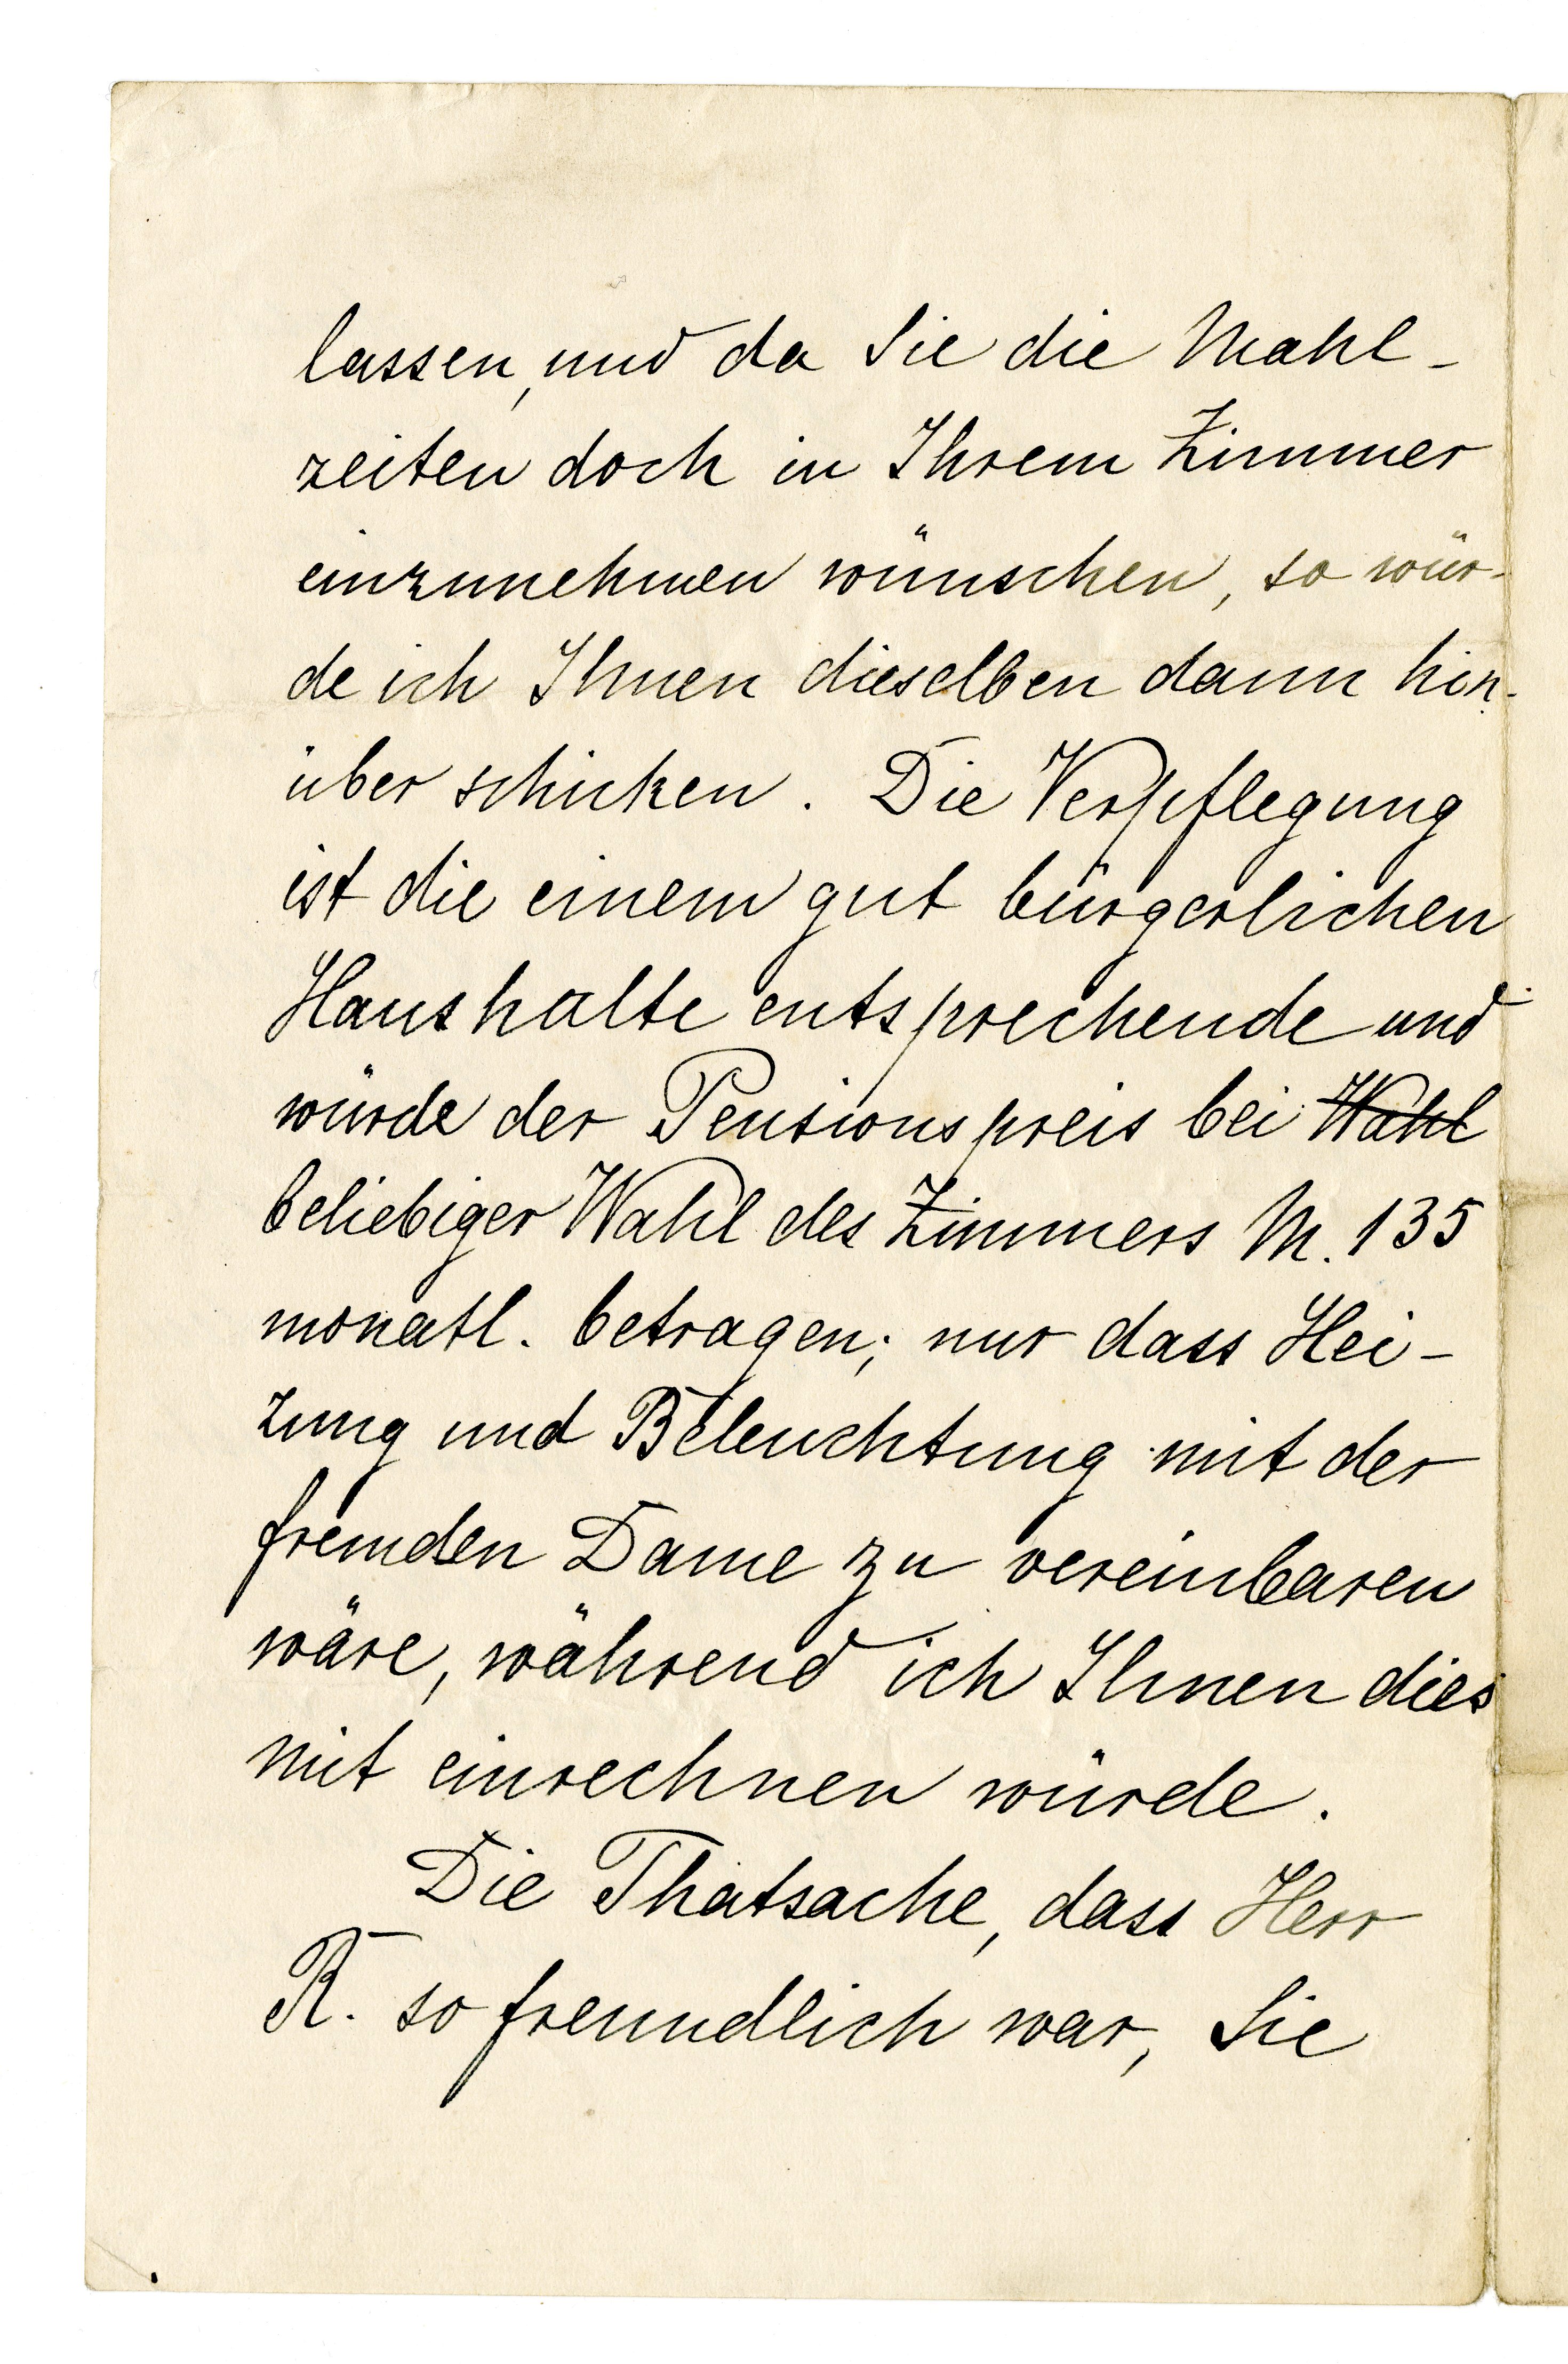 lassen, und da Sie die Mahl-
zeiten doch in Ihrem Zimmer
einzunehmen wünschen, so wür-
de ich Ihnen dieselben dann hin-
über schicken. Die Verpflegung
ist die einem gut bürgerlichen
Haushalte entsprechende und
würde der Pensionspreis bei Wahl
beliebiger Wahl des Zimmers M. 135
monatl. betragen; nur dass Hei-
zung und Beleuchtung mit der
fremden Dame zu vereinbaren
wäre, während ich Ihnen dies
mit einrechnen würde.
Die Thatsache, dass Herr
R. so freundlich war, Sie